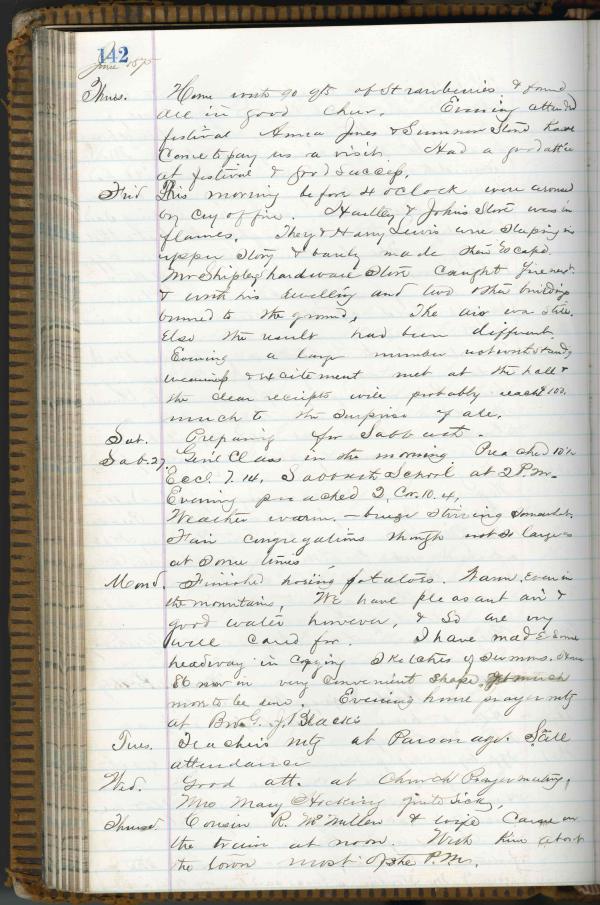 142
June 1875
Thurs. Home with 90 qts of Strawberries & found
all in good cheer. Evening attended
festival Anna Jones & Sumner Stone have
come to pay us a visit. Had a good att'ce
at festival & good success.
Frid This morning before 4 o'clock were aroused
by cry of fire. Huntley & Johns Store was in
flames. They & Harry Lewis were sleeping in
upper story & barely made their escape.
Mr Shipley hardware Store caught fire next
& with his dwelling and two other buildings
burned to the ground. The air was still.
Else the result had been different.
Evening a large number notwithstanding
weariness & excitement met at the hall &
the clear receipts will probably reach 100.
much to the surprise of all.
Sat. Preparing for Sabbath.
Sab. 27. Gen'l Class in the morning Preached 10½
Eccl. 7.14, Sabbath School at 2 P.M.
Evening preached 2, Cor. 10.4,
Weather warm. - breeze stirring somewhat.
Fair congregations though not so large as
at some times
Mond. Finished hoeing potatoes. Warm, even in
the mountains. We have pleasant air &
good water however, & so are very
well cared for. I have made some
headway in copying sketches of sermons. Have
86 now in very convenient shape
more to be done. Evening home prayer mtg
at Bro. G. Black's
Tues. Teacher's mtg at Parsonage. Small
attendance
Wed. Good att. at Church Prayer meeting.
Mrs Mary Hocking quite sick,
Thursd. Cousin R. McMillen & wife came on
the train at noon. With him about
the town most of the P.M.